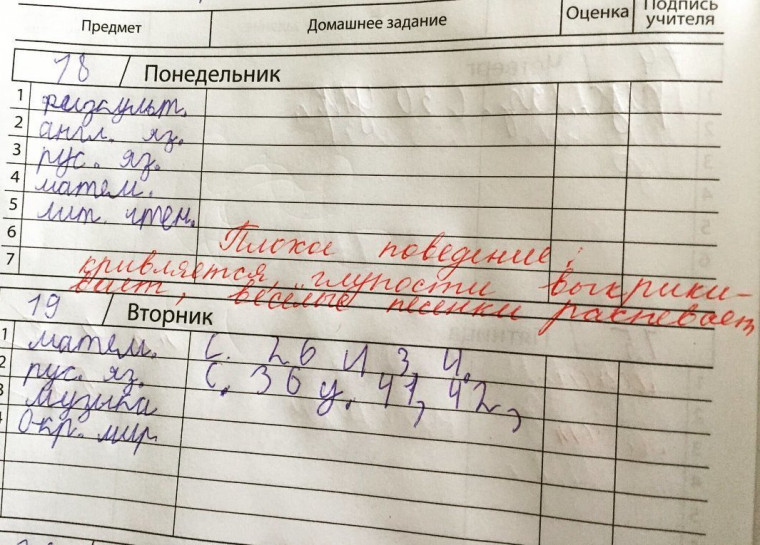 Предмет Домашнее задание Оценка Подпись учителя
18 Понедельник
1 физкульт.
2 англ. яз.
3 рус. яз.
4 матем.
5 лит. чтен.
6 Плохое поведение:
7 кривляется, глупости выкрики-
вает, весёлые песенки распевает
19 Вторник
1 матем. С. 26 И 3, 4.
2 рус. яз. С. 36 у. 41, 42,
3 музыка
4 Окр. мир